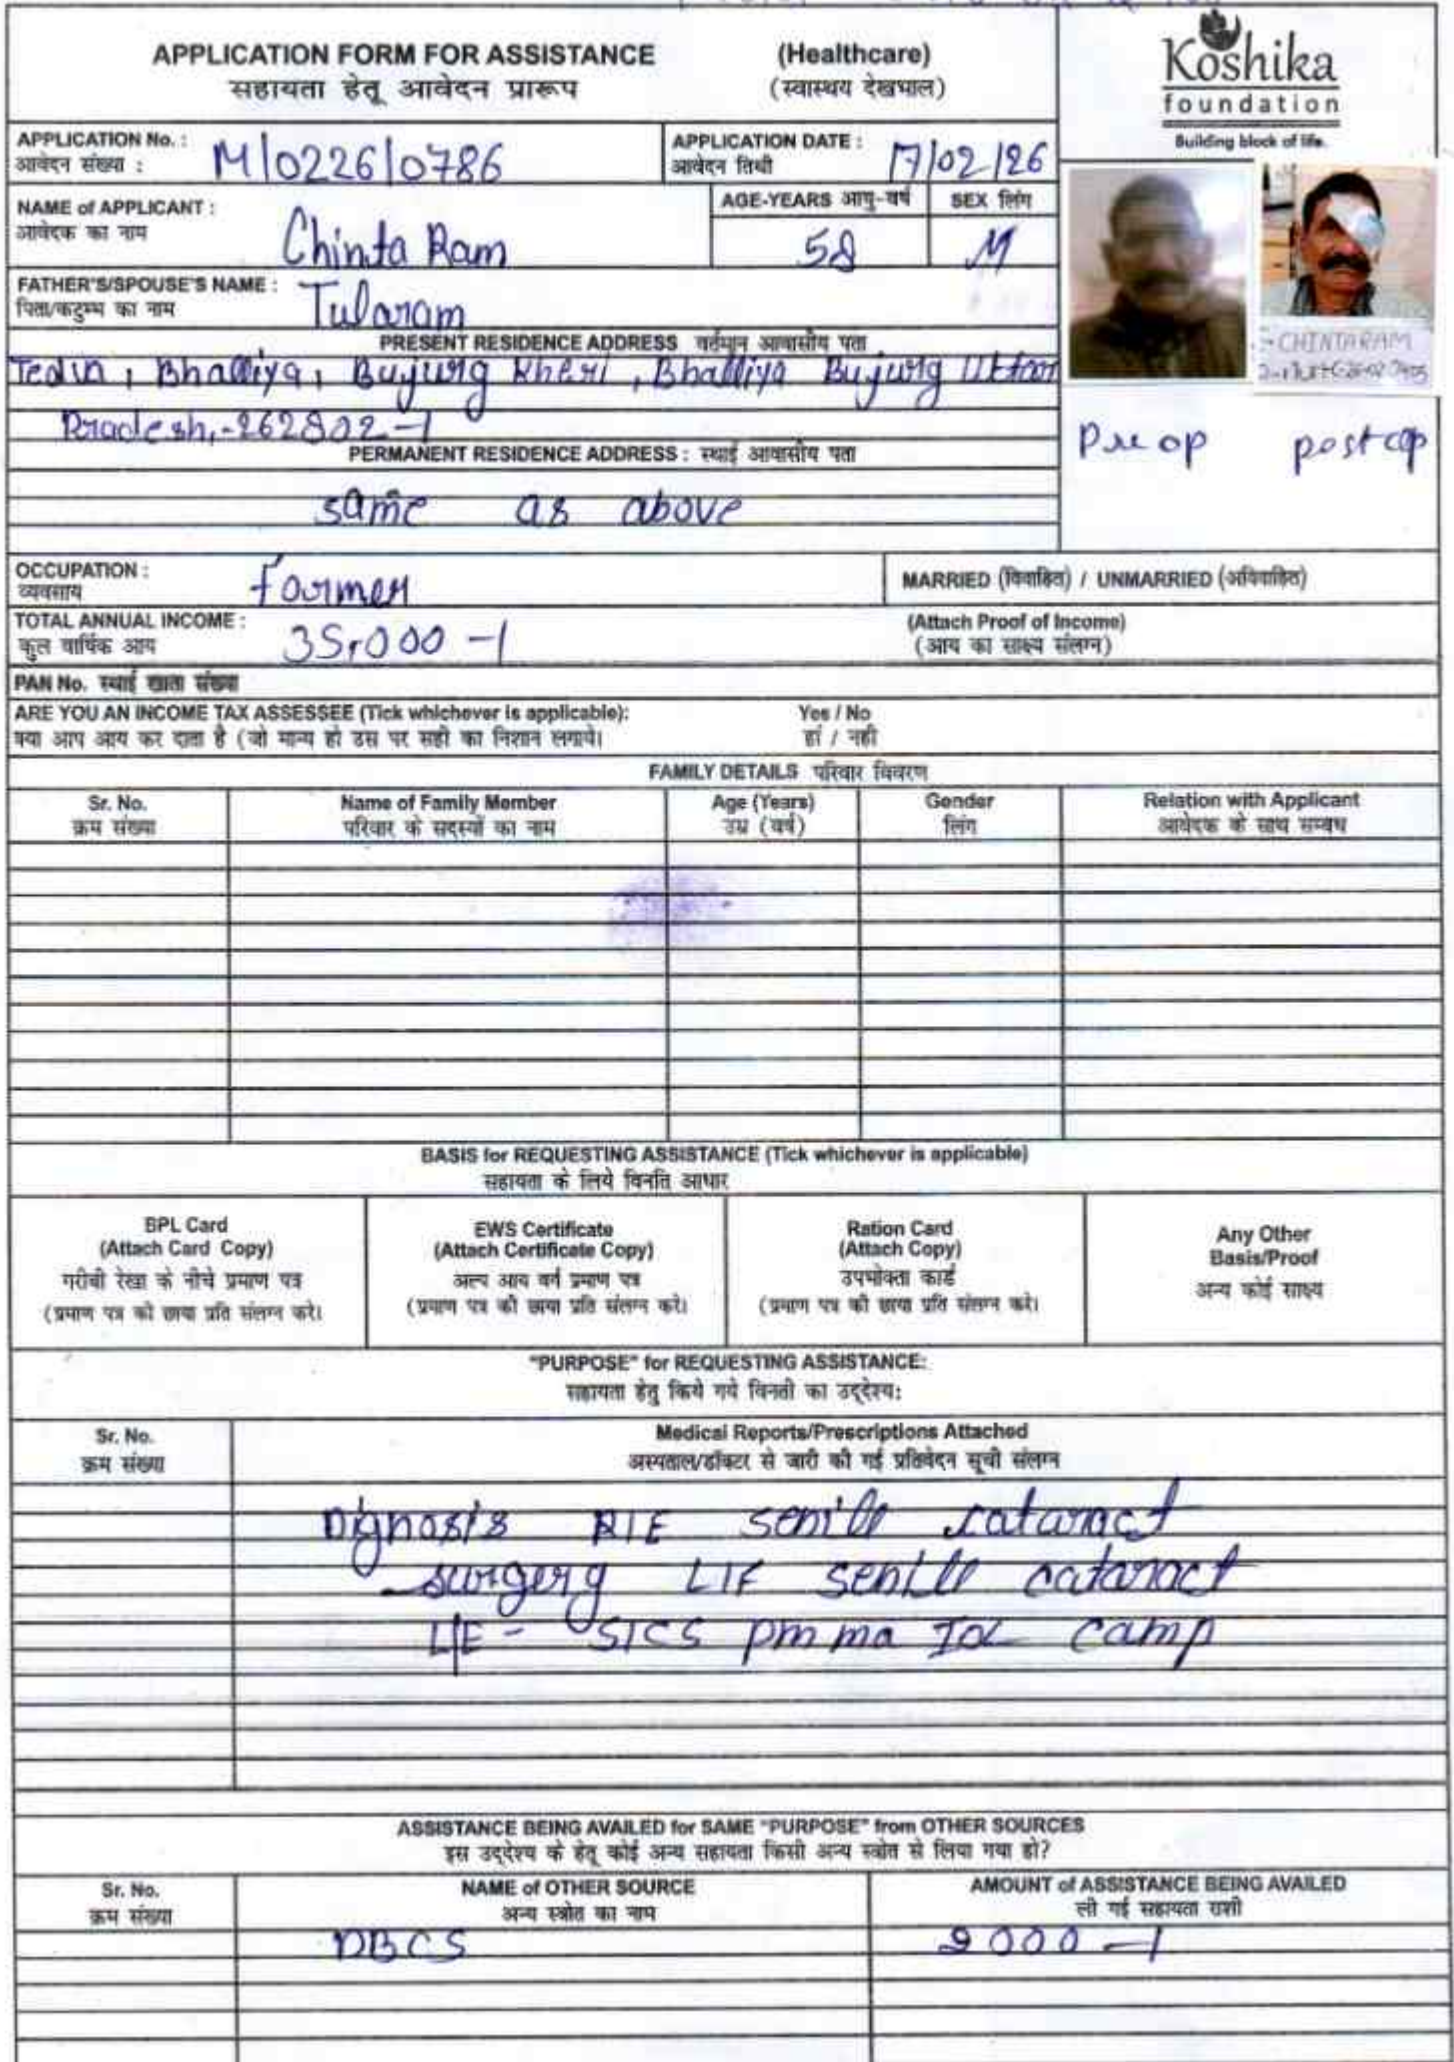 APPLICATION FORM FOR ASSISTANCE (Healthcare)
सहायता हेतू आवेदन प्रारूप (स्वास्थय देखभाल)
Koshika
foundation
Building block of life.
APPLICATION No. : M/0226/0786
आवेदन संख्या :
APPLICATION DATE : 17/02/26
आवेदन तिथी
NAME of APPLICANT : Chinta Ram
आवेदक का नाम
AGE-YEARS आयु-वर्ष 58
SEX लिंग M
FATHER'S/SPOUSE'S NAME : Tularam
पिता/कटुम्ब का नाम
CHINTARAM
PRESENT RESIDENCE ADDRESS वर्तमान आवासीय पता
Bhalliya, Bujurg Kheri, Bhalliya Bujurg Uttar
Pradesh,-262802-/
Pre op post op
PERMANENT RESIDENCE ADDRESS : स्थाई आवासीय पता
same as above
OCCUPATION : farmer
व्यवसाय
MARRIED (विवाहित) / UNMARRIED (अविवाहित)
TOTAL ANNUAL INCOME : 35,000 -/
कुल वार्षिक आय
(Attach Proof of Income)
(आय का साक्ष्य संलग्न)
PAN No. स्थाई खाता संख्या
ARE YOU AN INCOME TAX ASSESSEE (Tick whichever is applicable): Yes / No
क्या आप आय कर दाता है (जो मान्य हो उस पर सही का निशान लगाये। हां / नही
FAMILY DETAILS परिवार विवरण
Sr. No. Name of Family Member Age (Years) Gender Relation with Applicant
क्रम संख्या परिवार के सदस्यों का नाम उम्र (वर्ष) लिंग आवेदक के साथ सम्बध
BASIS for REQUESTING ASSISTANCE (Tick whichever is applicable)
सहायता के लिये विनति आधार
BPL Card
(Attach Card Copy)
गरीबी रेखा के नीचे प्रमाण पत्र
(प्रमाण पत्र की छाया प्रति संलग्न करे।
EWS Certificate
(Attach Certificate Copy)
अल्प आय वर्ग प्रमाण पत्र
(प्रमाण पत्र की छाया प्रति संलग्न करे।
Ration Card
(Attach Copy)
उपभोक्ता कार्ड
(प्रमाण पत्र की छाया प्रति संलग्न करे।
Any Other
Basis/Proof
अन्य कोई साक्ष्य
"PURPOSE" for REQUESTING ASSISTANCE:
सहायता हेतु किये गये विनती का उद्देश्य:
Sr. No. Medical Reports/Prescriptions Attached
क्रम संख्या अस्पताल/डॉक्टर से जारी की गई प्रतिवेदन सूची संलग्न
Dignosis R/E senile cataract
surgery L/E senile cataract
L/E - SICS pmma IOL camp
ASSISTANCE BEING AVAILED for SAME "PURPOSE" from OTHER SOURCES
इस उद्देश्य के हेतू कोई अन्य सहायता किसी अन्य स्त्रोत से लिया गया हो?
Sr. No. NAME of OTHER SOURCE AMOUNT of ASSISTANCE BEING AVAILED
क्रम संख्या अन्य स्त्रोत का नाम ली गई सहायता राशी
DBCS 2000 -/